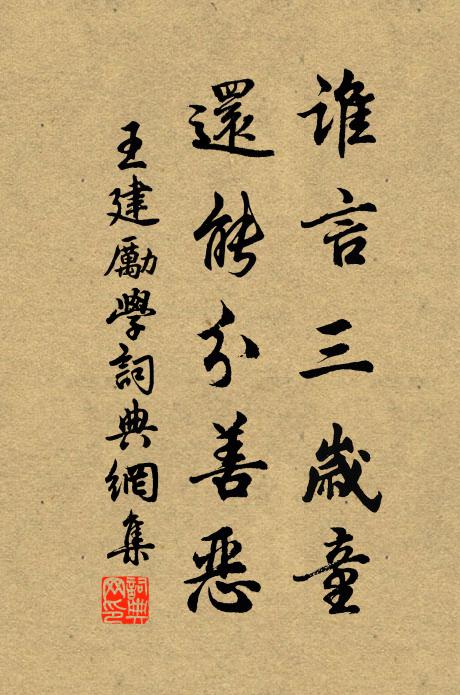 誰言三歲童
還能分善惡
王建勵學詞典網集
詞典網印